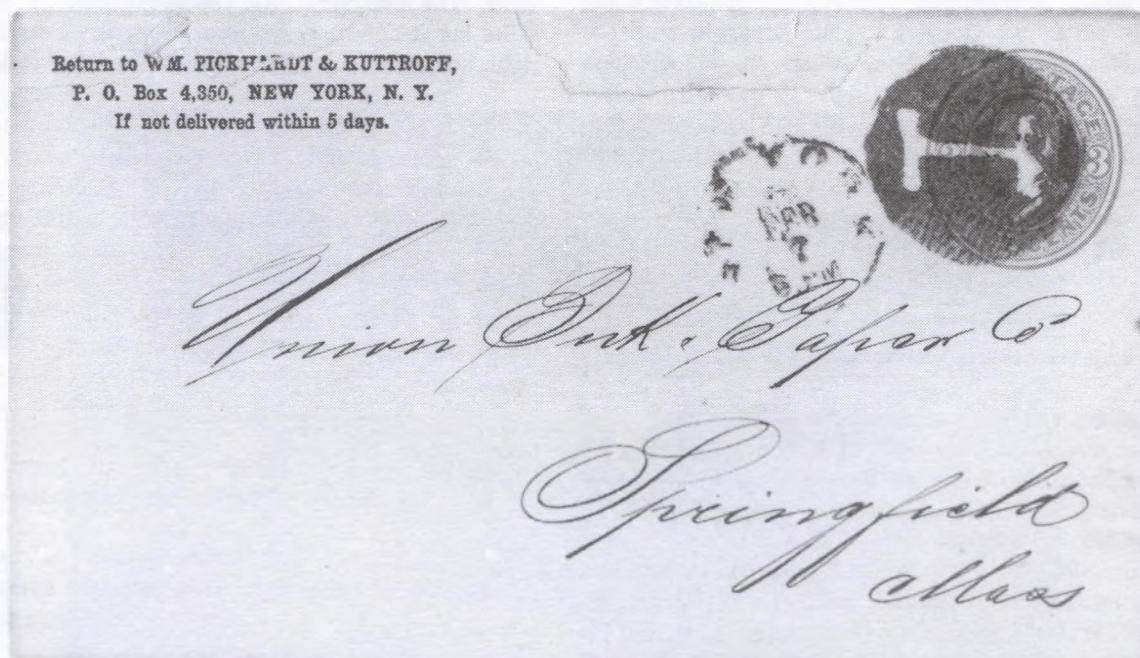 Return to WM. PICKHARDT & KUTTROFF,
P. O. Box 4,350, NEW YORK, N. Y.
If not delivered within 5 days.
POSTAGE
3
CENTS
APR
7
Union Ink & Paper Co
Springfield
Mass